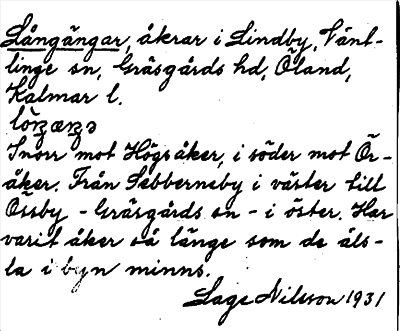 Långängar, åkrar i Lindby, Vänt-
linge sn, Gräsgårds hd, Öland,
Kalmar l.
Snorr mot Högsåker, i söder mot Ör-
åker. Från Sebberneby i väster till
Össby - Gräsgårds sn - i öster. Har
varit åker så länge som de äls-
ta i byn minns.
Lage Nilsson 1931